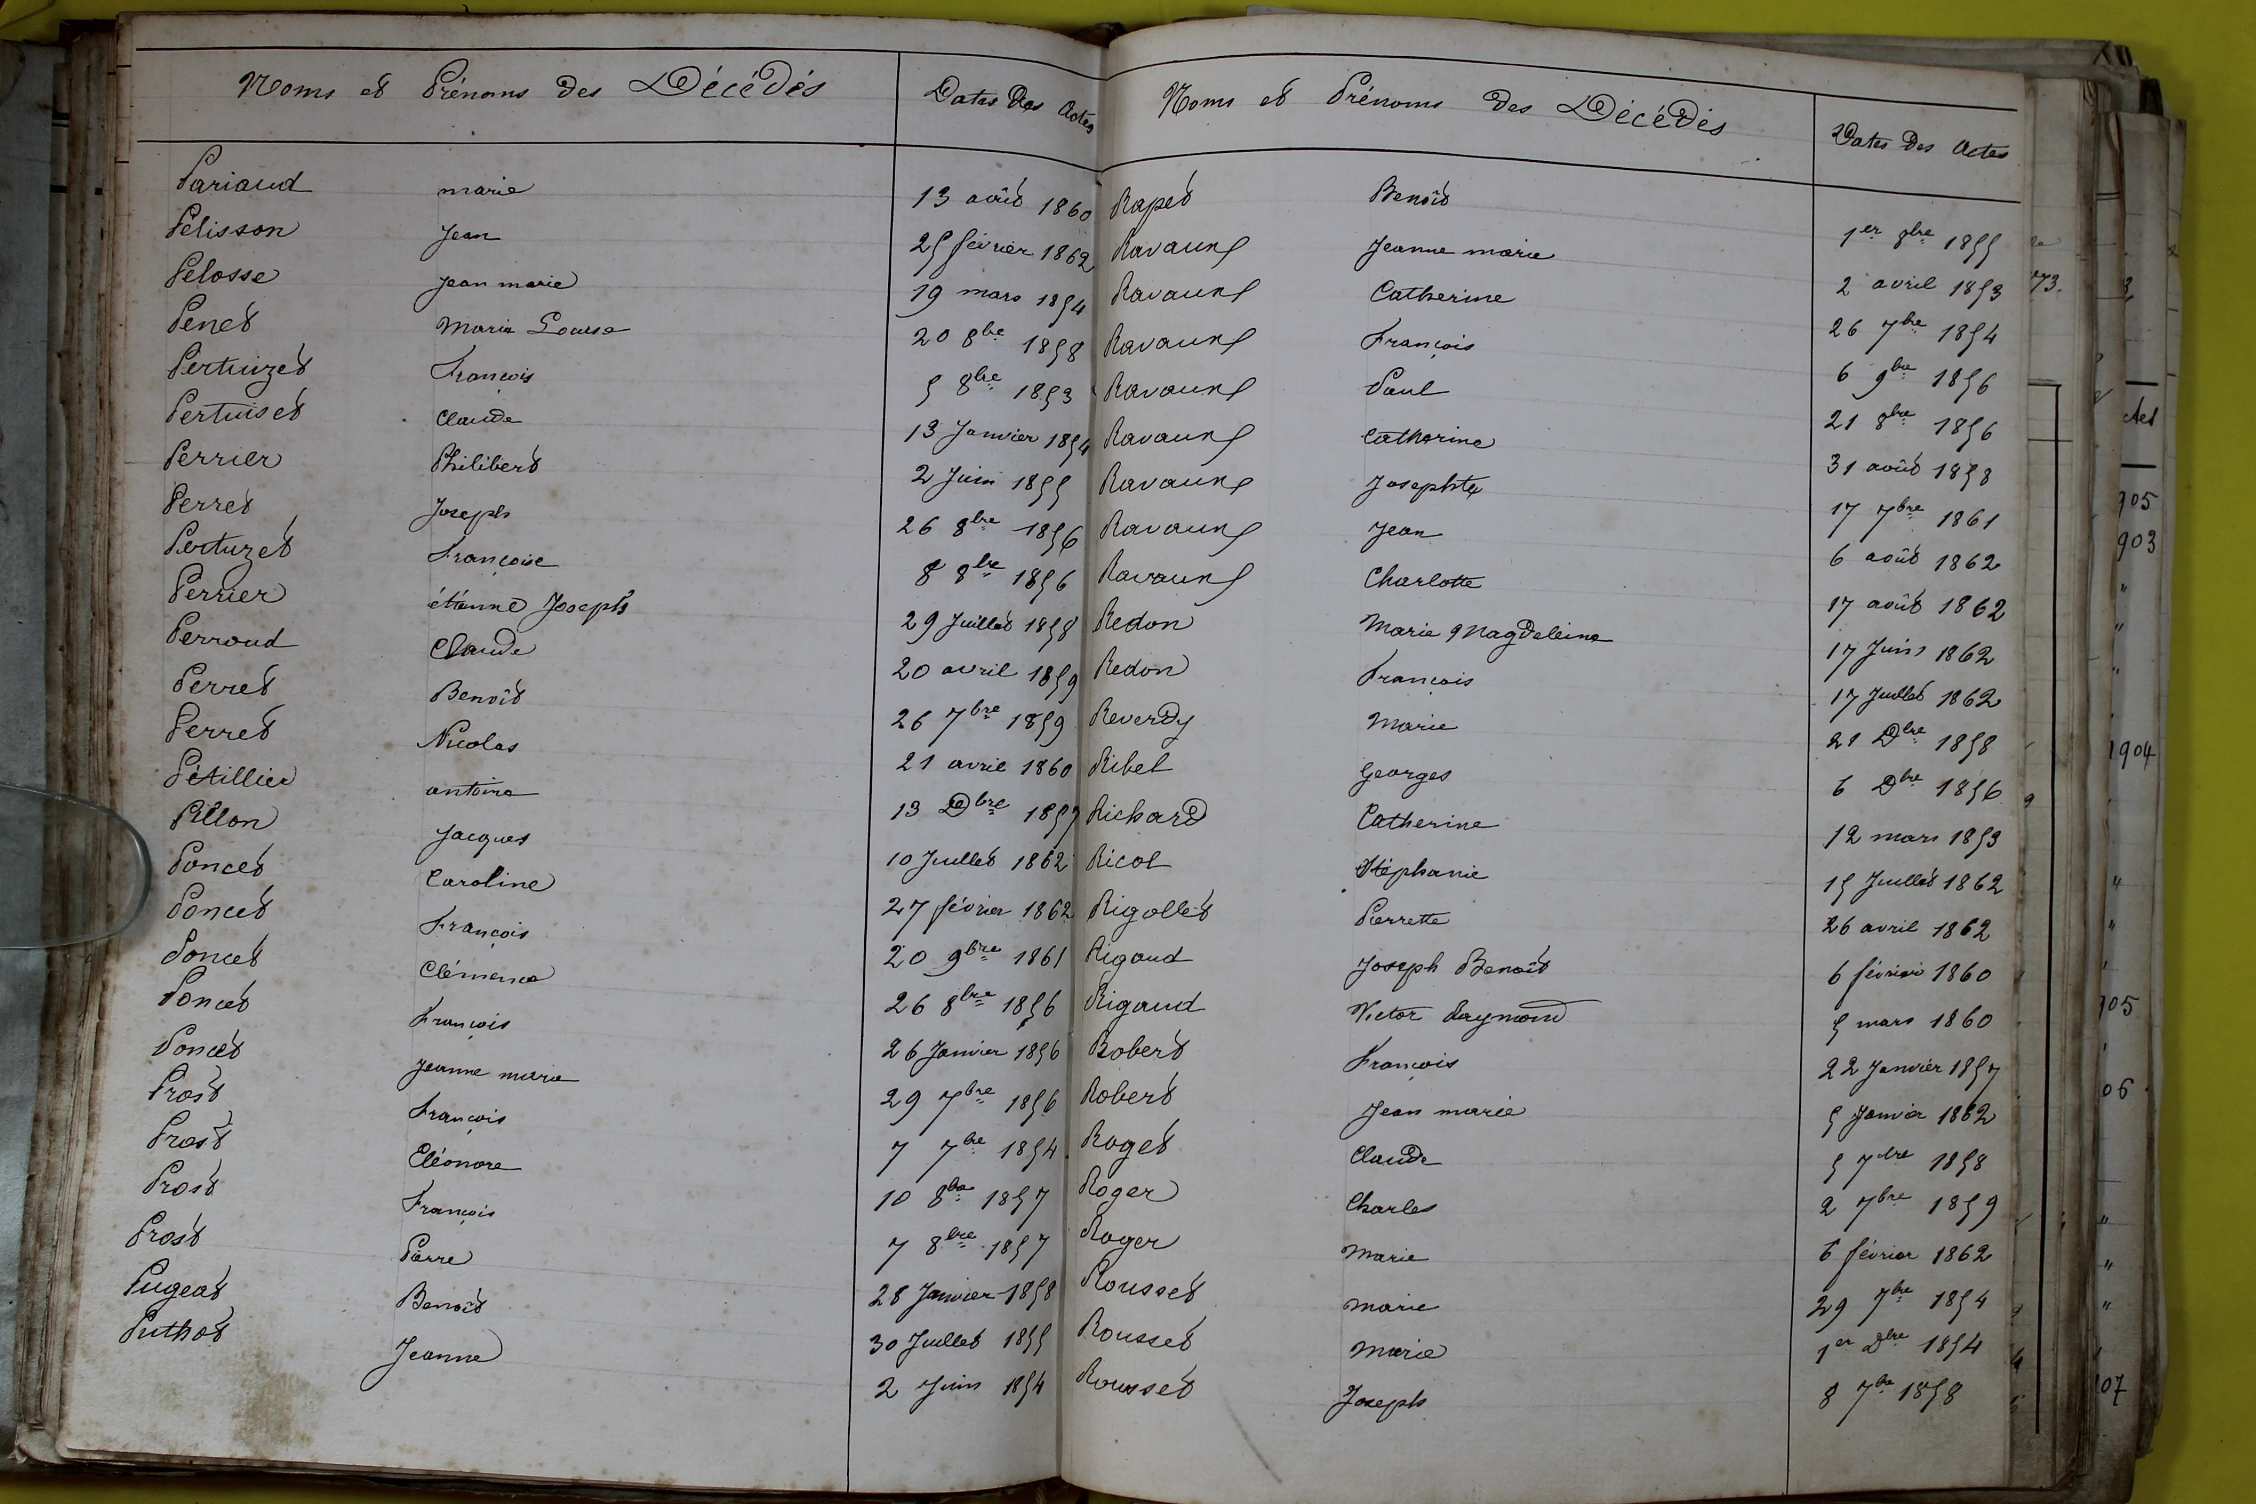 Noms et Prénoms des Décédés Dates des Actes
Pariaud marie 13 août 1860
Pelisson Jean 25 février 1862
Pelosse Jean marie 19 mars 1854
Penet Marie Louise 20 8bre 1858
Pertuizet François 5 8bre 1853
Pertuiset Claude 13 Janvier 1854
Perrier Philibert 2 Juin 1855
Perret Joseph 26 8bre 1856
Pertuzet Françoise 8 8bre 1856
Perrier étienne Joseph 29 Juillet 1858
Perroud Claude 20 avril 1859
Perret Benoît 26 7bre 1859
Perret Nicolas 21 avril 1860
Pétillier antoine 13 Dbre 1857
Pillon Jacques 10 Juillet 1862
Poncet Caroline 27 février 1862
Poncet François 20 9bre 1861
Poncet Clémence 26 8bre 1856
Poncet François 26 Janvier 1856
Poncet Jeanne marie 29 7bre 1856
Prost François 7 7bre 1854
Prost Eléonore 10 8bre 1857
Prost François 7 8bre 1857
Prost Pierre 28 Janvier 1858
Pugeat Benoît 30 Juillet 1855
Puthod Jeanne 2 Juin 1854
Noms et Prénoms des Décédés Dates des Actes
Rapet Benoît 1er 8bre 1855
Ravaux Jeanne marie 2 avril 1853
Ravaux Catherine 26 7bre 1854
Ravaux François 6 9bre 1856
Ravaux Paul 21 8bre 1856
Ravaux Catherine 31 août 1858
Ravaux Josephte 17 7bre 1861
Ravaux Jean 6 août 1862
Ravaux Charlotte 17 août 1862
Redon Marie Magdeleine 17 Juin 1862
Redon François 17 Juillet 1862
Reverdy Marie 21 Dbre 1858
Ribel Georges 6 Dbre 1856
Richard Catherine 12 mars 1853
Ricol Stéphanie 15 Juillet 1862
Rigollet Pierrette 26 avril 1862
Rigaud Joseph Benoît 6 février 1860
Rigaud Victor Raymond 5 mars 1860
Robert François 22 Janvier 1857
Robert Jean marie 5 Janvier 1862
Roget Claude 5 7bre 1858
Roger Charles 2 7bre 1859
Roger Marie 6 février 1862
Rousset marie 29 7bre 1854
Rousset Marie 1er Dbre 1854
Rousset Joseph 8 7bre 1858
73.
905
903
1904
05
06
07